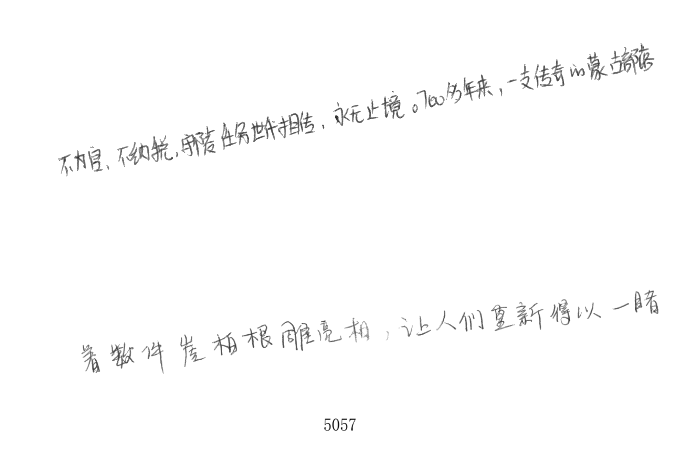 不为官、不纳税,守陵任务世代相传,永无止境。700多年来,一支传奇的蒙古部落
着数件崖柏根雕亮相,让人们重新得以一睹
5057